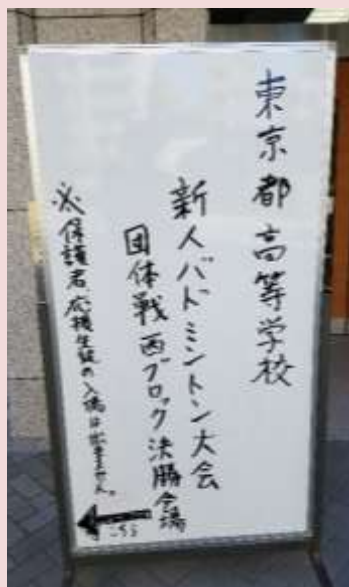 東京都高等学校
新人バドミントン大会
団体戦西ブロック決勝会場
※保護者、応援生徒の入場は出来ません。
こちら